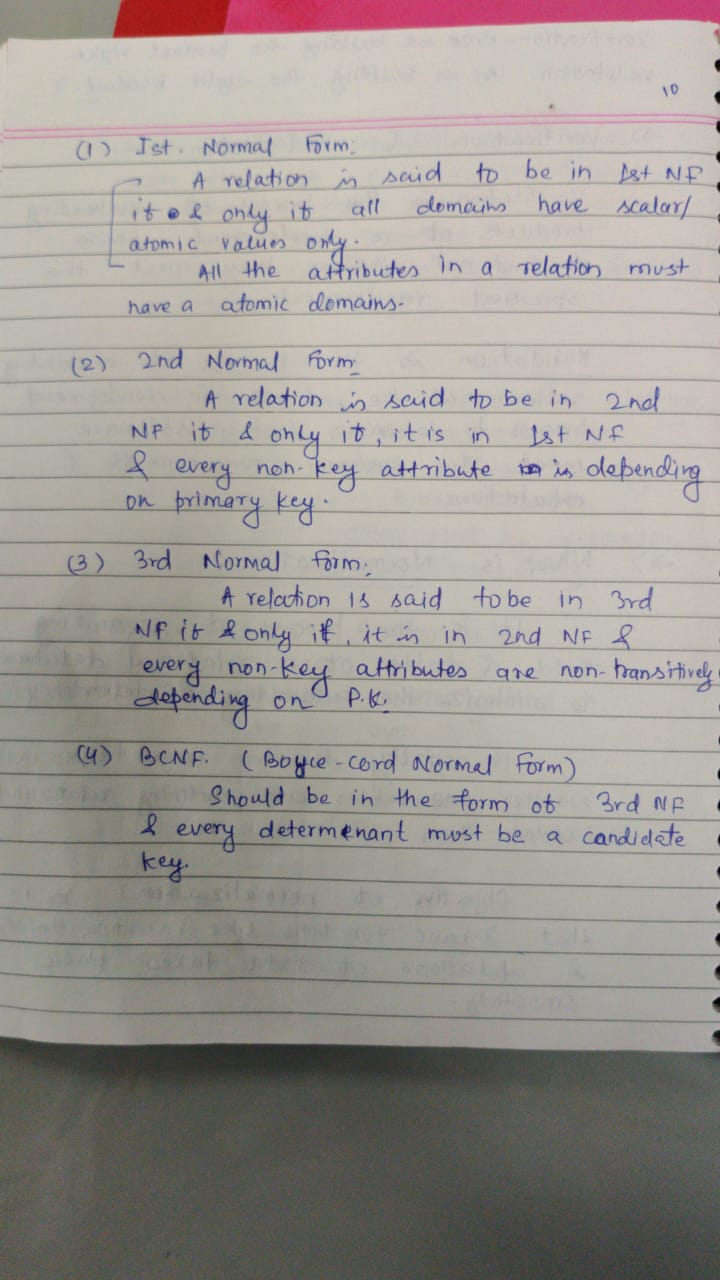 10
(1) Ist. Normal Form:
A relation is said to be in 1st NF
if & only if all domains have scalar/
atomic values only.
All the attributes in a relation must
have a atomic domains.
(2) 2nd Normal Form:
A relation is said to be in 2nd
NF if & only if, it is in 1st NF
& every non-key attribute is depending
on primary key.
(3) 3rd Normal form:
A relation is said to be in 3rd
NF if & only if, it is in 2nd NF &
every non-key attributes are non-transitively
depending on P.K.
(4) BCNF. (Boyce-cord Normal Form)
Should be in the form of 3rd NF
& every determenant must be a candidate
key.